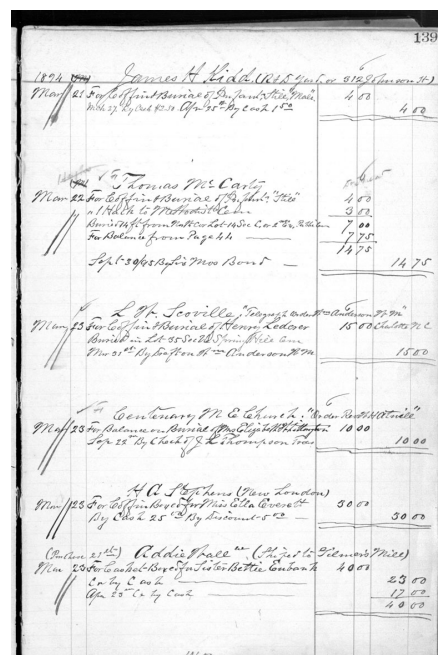 139
1894 James H Kidd (R & D Yard or 312 Johnson St)
Mar 21 For Coffin & Burial of Infant "Still" "Male" 4 00
Mch 27 By Cash $2.50 Apr 25th By Cash 1 50 4 00
Thomas McCarty
Mar 22 For Coffin & Burial of Infant "Still" 4 00
" 1 Hack to Methodist Cem 3 00
7 00
For Balance from Page 44 7 75
14 75
Sept 30/95 By Six Mos Bond 14 75
L W Scoville, "Telegraph Order Wm Anderson W M"
Mar 23 For Coffin & Burial of Henry Lederer 15 00 Charlotte N.C.
Buried in Lot 35 Sec Spring Hill Cem
Mar 31st By Draft on Wm Anderson W M 15 00
Centenary M E Church. "Order Rev
Mar 23 For Balance on Burial of Mrs Elizabeth Whittington 10 00
Sep 22nd By Check of J L Thompson Treas 10 00
H A Stephens (New London)
Mar 23 For Coffin Box &c for Miss Etta Everett 30 00
By Cash 25 00 By Discount 5 00 30 00
Addie Hall (Shiped to Gilmers Mill)
Mar 23 For Casket Box &c for Sister Bettie Eubank 40 00
Cr by Cash 23 00
Apr 23rd Cr by Cash 17 00
40 00